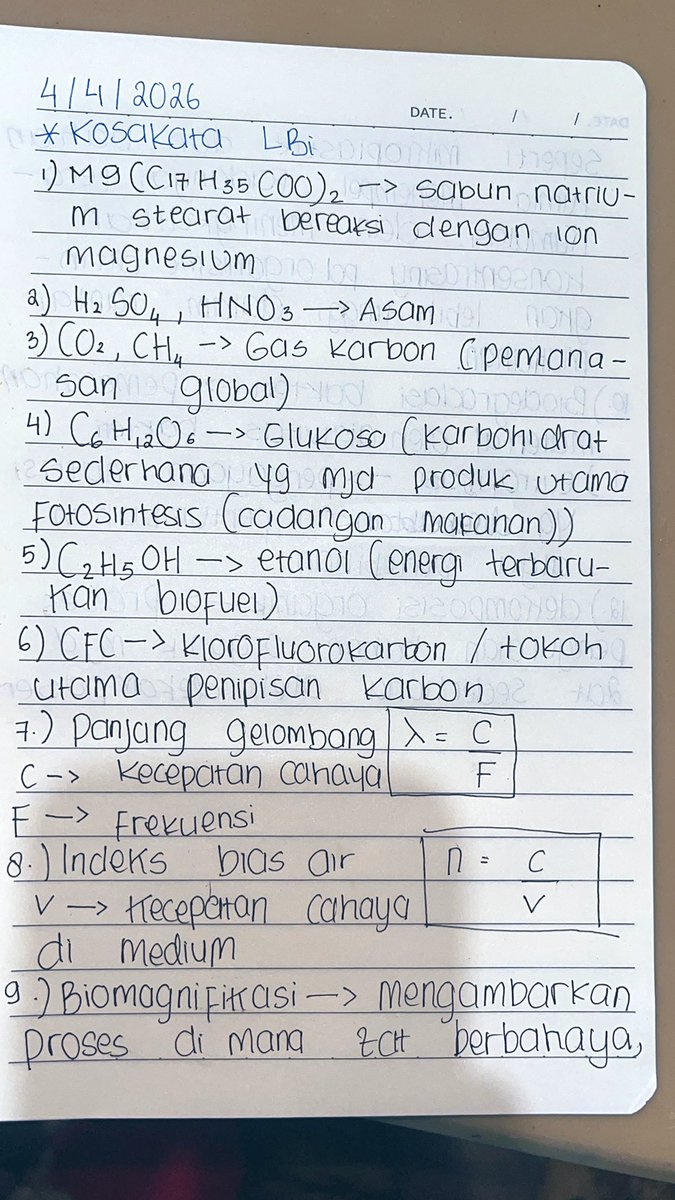 4/4/2026
DATE. / /
* Kosakata LBi
1) Mg(C17H35COO)2 -> sabun natriu-
m stearat bereaksi dengan ion
magnesium
2) H2SO4, HNO3 -> Asam
3) CO2, CH4 -> Gas karbon (pemana-
san global)
4) C6H12O6 -> Glukosa (karbohidrat
sederhana yg mjd produk utama
Fotosintesis (cadangan makanan))
5) C2H5OH -> etanol (energi terbaru-
kan biofuel)
6) CFC -> Klorofluorokarbon / tokoh
utama penipisan karbon
7.) Panjang gelombang λ = C/F
C -> kecepatan cahaya
F -> Frekuensi
8.) Indeks bias air n = C/V
V -> kecepatan cahaya
di medium
9.) Biomagnifikasi -> mengambarkan
proses di mana zat berbahaya,